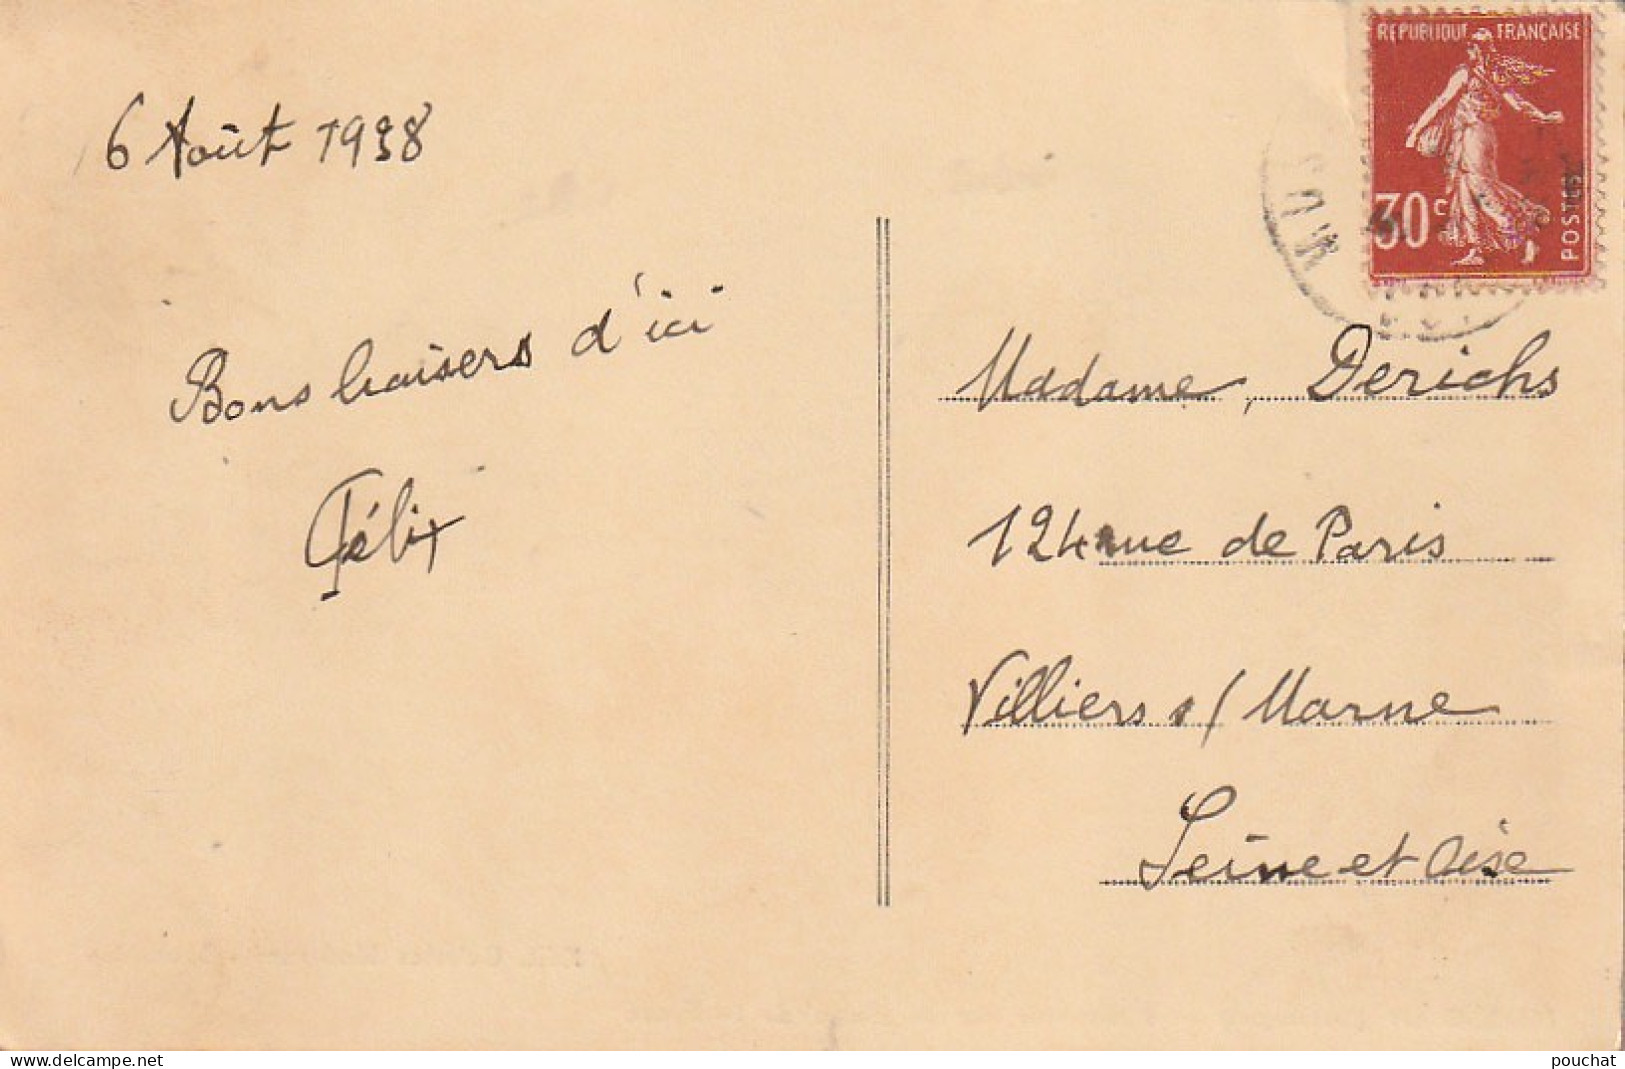 6 Août 1938
Bons baisers d'ici
Félix
REPUBLIQUE FRANÇAISE
30c
POSTES
Madame, Derichs
124 rue de Paris
Villiers s/ Marne
Seine et Oise
www.delcampe.net
pouchat